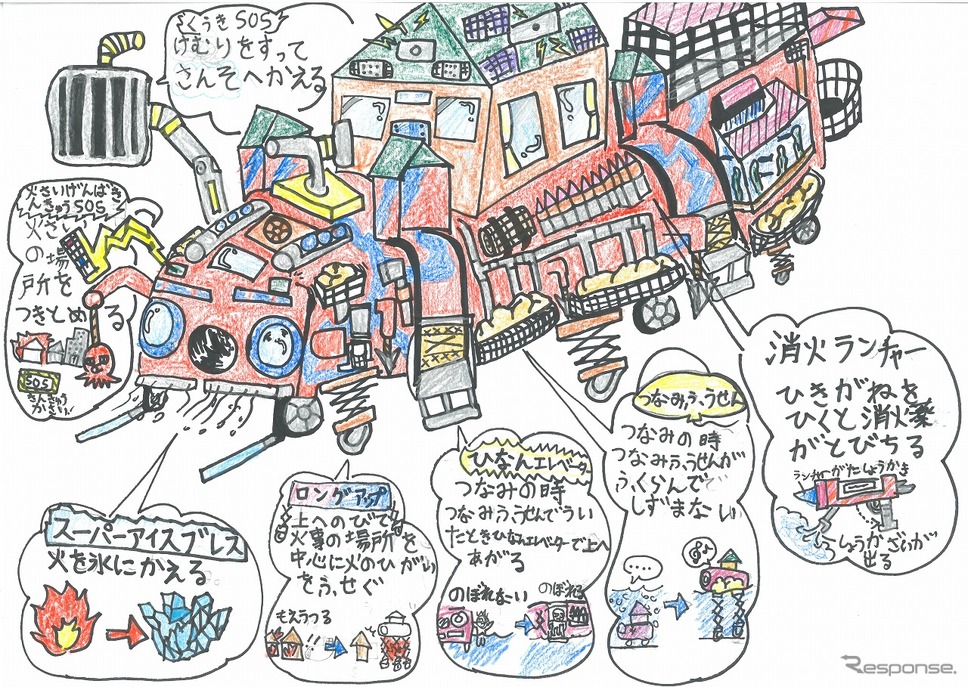 くうきSOS
けむりをすって
さんそへかえる
火さいげんばき
んきゅうSOS
火さい
の場
所を
つきとめる
SOS
きんきゅう
かさい!
消火ランチャー
ひきがねを
ひくと消火薬
がとびちる
ランチャーがたしょうかき
しょうかざいが
出る
つなみふうせん
つなみの時
つなみふうせんが
ふくらんで
しずまない
ひなんエレベーター
つなみの時
つなみふうせんでうい
たときひなんエレベーターで上へ
あがる
のぼれない
のぼれる
ロングアップ
上へのびて
火事の場所を
中心に火のひがい
をふせぐ
もえうつる
スーパーアイスブレス
火を氷にかえる
Response.